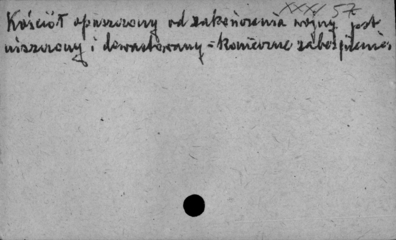 XXXIV 57
Kościół opuszczony od zakończenia wojny jest
niszczony i dewastowany - konieczne zabezpieczenie